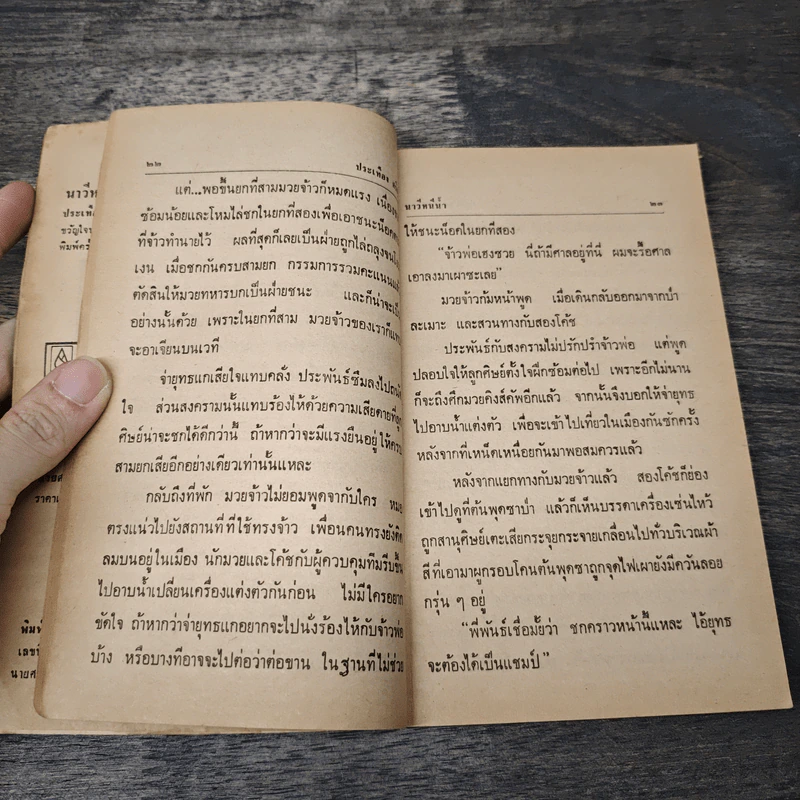 นาวีห
ประเทือ
ขวัญใจ
พิมพ์ครั้
ราคาเ
พิมพ์
เลขที่
นายศ
๒๒ ประเทือง
แต่...พอขึ้นยกที่สามมวยจ้าวก็หมดแรง เนื่องจาก
ซ้อมน้อยและโหมไล่ชกในยกที่สองเพื่อเอาชนะน็อค
ที่จ้าวทำนายไว้ ผลที่สุดก็เลยเป็นฝ่ายถูกไล่ถลุงจน
เงน เมื่อชกกันครบสามยก กรรมการรวมคะแนนแล้ว
ตัดสินให้มวยทหารบกเป็นฝ่ายชนะ และก็น่าจะเป็น
อย่างนั้นด้วย เพราะในยกที่สาม มวยจ้าวของเราก็แทบ
จะอาเจียนบนเวที
จ่ายุทธแกเสียใจแทบคลั่ง ประพันธ์ซึมลงไปถนัด
ใจ ส่วนสงครามนั้นแทบร้องไห้ด้วยความเสียดายที่ลูก
ศิษย์น่าจะชกได้ดีกว่านี้ ถ้าหากว่าจะมีแรงยืนอยู่ให้ครบ
สามยกเสียอีกอย่างเดียวเท่านั้นแหละ
กลับถึงที่พัก มวยจ้าวไม่ยอมพูดจากับใคร หมอ
ตรงแน่วไปยังสถานที่ที่ใช้ทรงจ้าว เพื่อนคนทรงยังติด
ลมบนอยู่ในเมือง นักมวยและโค้ชกับผู้ควบคุมทีมรีบขึ้น
ไปอาบน้ำเปลี่ยนเครื่องแต่งตัวกันก่อน ไม่มีใครอยาก
ขัดใจ ถ้าหากว่าจ่ายุทธแกอยากจะไปนั่งร้องไห้กับจ้าวพ่อ
บ้าง หรือบางทีอาจจะไปต่อว่าต่อขาน ในฐานที่ไม่ช่วย
นาวีหนีน้ำ ๒๓
ให้ชนะน็อคในยกที่สอง
“จ้าวพ่อเฮงซวย นี่ถ้ามีศาลอยู่ที่นี่ ผมจะรื้อศาล
เอาลงมาเผาซะเลย”
มวยจ้าวก้มหน้าพูด เมื่อเดินกลับออกมาจากป่า
ละเมาะ และสวนทางกับสองโค้ช
ประพันธ์กับสงครามไม่ปรักปรำจ้าวพ่อ แต่พูด
ปลอบใจให้ลูกศิษย์ตั้งใจฝึกซ้อมต่อไป เพราะอีกไม่นาน
ก็จะถึงศึกมวยคิงส์คัพอีกแล้ว จากนั้นจึงบอกให้จ่ายุทธ
ไปอาบน้ำแต่งตัว เพื่อจะเข้าไปเที่ยวในเมืองกันซักครั้ง
หลังจากที่เหน็ดเหนื่อยกันมาพอสมควรแล้ว
หลังจากแยกทางกับมวยจ้าวแล้ว สองโค้ชก็ย่อง
เข้าไปดูที่ต้นพุดซาป่า แล้วก็เห็นบรรดาเครื่องเซ่นไหว้
ถูกสานุศิษย์เตะเสียกระจุยกระจายเกลื่อนไปทั่วบริเวณผ้า
สีที่เอามาผูกรอบโคนต้นพุดซาถูกจุดไฟเผายังมีควันลอย
กรุ่น ๆ อยู่
“พี่พันธ์เชื่อมั้ยว่า ชกคราวหน้านี้แหละ ไอ้ยุทธ
จะต้องได้เป็นแชมป์”